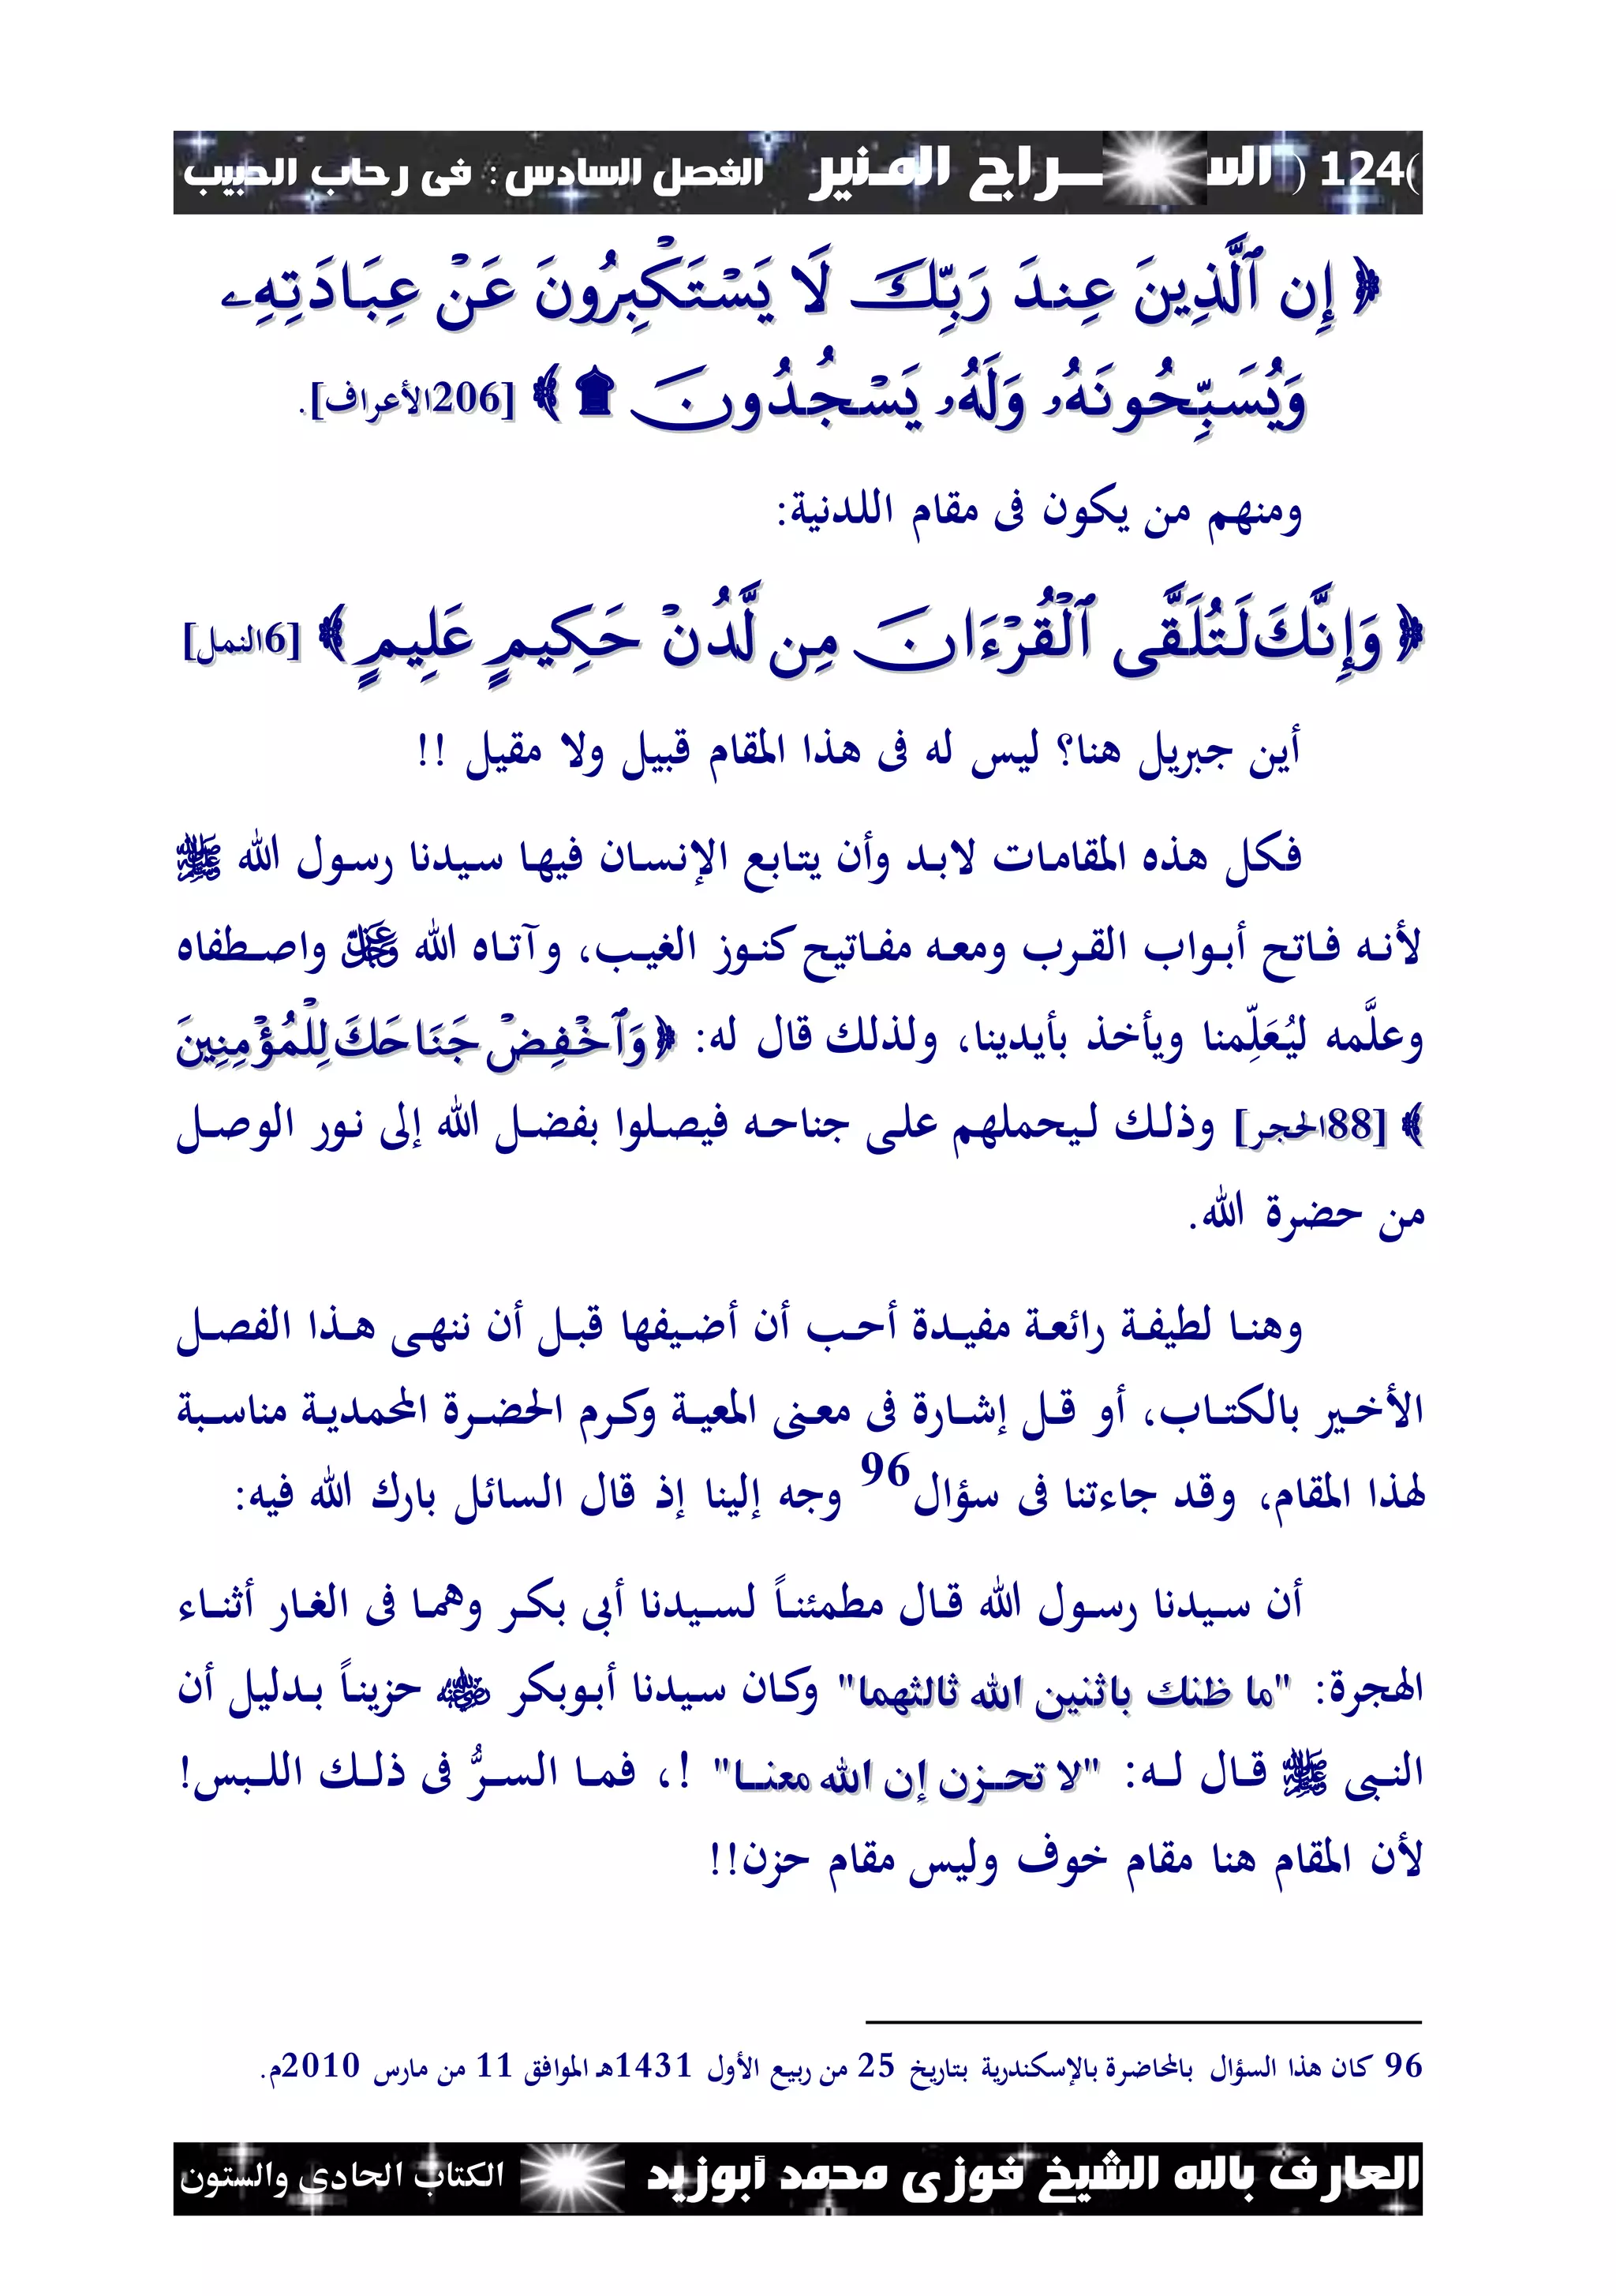 (124) الســـراج المنير الفصل السادس: فى رحاب الحبيب
﴿ إِنَّ ٱلَّذِينَ عِندَ رَبِّكَ لَا يَسْتَكْبِرُونَ عَنْ عِبَادَتِهِۦ
وَيُسَبِّحُونَهُۥ وَلَهُۥ يَسْجُدُونَ ۩ ﴾ [206الأعراف].
ومنهم من يكون فى مقام اللدنية:
﴿ وَإِنَّكَ لَتُلَقَّى ٱلْقُرْءَانَ مِن لَّدُنْ حَكِيمٍ عَلِيمٍ ﴾ [6النمل]
أين جبريل هنا؟ ليس له فى هذا المقام قبيل ولا مقيل !!
فكل هذه المقامات لابد وأن يتابع الإنسان فيها سيدنا رسول الله ﷺ
لأنه فاتح أبواب القرب ومعه مفاتيح كنوز الغيب، وآتاه الله عز وجل واصطفاه
وعلَّمه ليُعَلِّمنا ويأخذ بأيدينا، ولذلك قال له: ﴿ وَٱخْفِضْ جَنَاحَكَ لِلْمُؤْمِنِينَ
﴾ [88الحجر] وذلك ليحملهم على جناحه فيصلوا بفضل الله إلى نور الوصل
من حضرة الله.
وهنا لطيفة رائعة مفيدة أحب أن أضيفها قبل أن ننهى هذا الفصل
الأخير بالكتاب، أو قل إشارة فى معنى المعية وكرم الحضرة المحمدية مناسبة
لهذا المقام، وقد جاءتنا فى سؤال96 وجه إلينا إذ قال السائل بارك الله فيه:
أن سيدنا رسول الله قال مطمئناً لسيدنا أبى بكر وهما فى الغار أثناء
الهجرة: "ما ظنك باثنين الله ثالثهما" وكان سيدنا أبوبكر رضي الله عنه حزيناً بدليل أن
النبى ﷺ قال له: "لا تحزن إن الله معنا" !، فما السرُّ فى ذلك اللبس!
لأن المقام هنا مقام خوف وليس مقام حزن!!
96 كان هذا السؤال بالمحاضرة بالإسكندرية بتاريخ 25 من ربيع الأول 1431هـ الموافق 11 من مارس 2010م.
العارف بالله الشيخ فوزى محمد أبوزيد الكتاب الحادى والستون